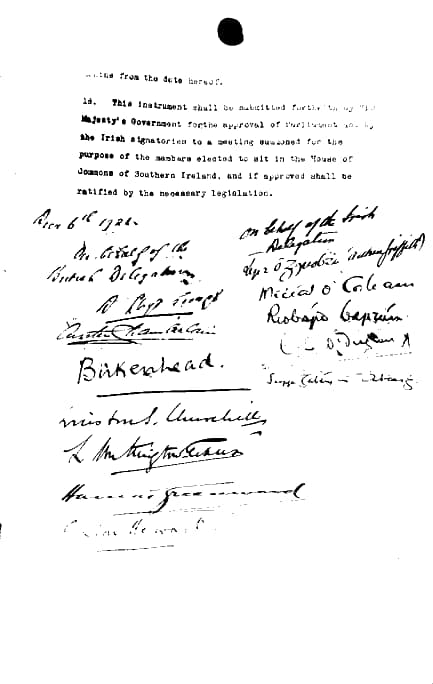 from the date hereof.
18. This instrument shall be submitted forthwith by His
Majesty's Government forthe approval of Parliament and by
the Irish signatories to a meeting summoned for the
purpose of the members elected to sit in the House of
Commons of Southern Ireland, and if approved shall be
ratified by the necessary legislation.
Decr 6th 1921.
On behalf of the
British Delegation
D Lloyd George
Austen Chamberlain
Birkenhead.
Winston S. Churchill
L Worthington Evans
Hamar Greenwood
Gordon Hewart
On behalf of the Irish
Delegation
Art Ó Gríobhtha (Arthur Griffith)
Mícheál Ó Coileain
Riobárd Bartún